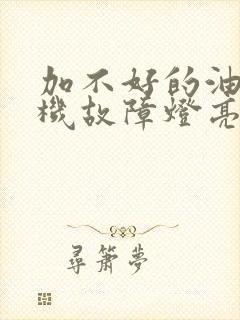 加不好的油
機故障燈亮
尋簫夢